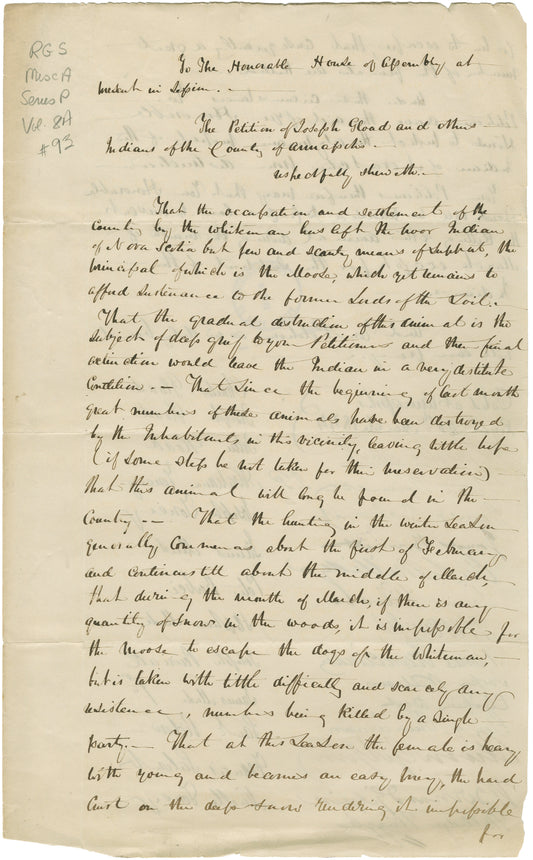 RG 5
Misc A
Series P
Vol. 8A
#93
To The Honorable House of Assembly at
present in Session. —
The Petition of Joseph Gload and others
Indians of the County of Annapolis.
respectfully sheweth. —
That the occupation and settlement of the
Country by the whiteman has left the poor Indian
of Nova Scotia but few and scanty means of support, the
principal of which is the Moose, which yet remains to
afford sustenance to the former Lords of the Soil. —
That the gradual destruction of this animal is the
subject of deep grief to your Petitioners and their final
extinction would leave the Indian in a very destitute
Condition. — That since the beginning of last month
great numbers of these animals have been destroyed
by the Inhabitants in this vicinity, leaving little hope
(if some steps be not taken for their preservation)
that this animal will long be found in the
Country. — That the hunting in the winter Season
generally commences about the first of February
and continues till about the middle of March,
that during the month of March, if there is any
quantity of snow in the woods, it is impossible for
the moose to escape the dogs of the Whiteman, —
but is taken with little difficulty and scarcely any
resistence, numbers being killed by a single
party. — That at this Season the female is heavy
with young and becomes an easy prey, the hard
Crust on the deep snow rendering it impossible
for